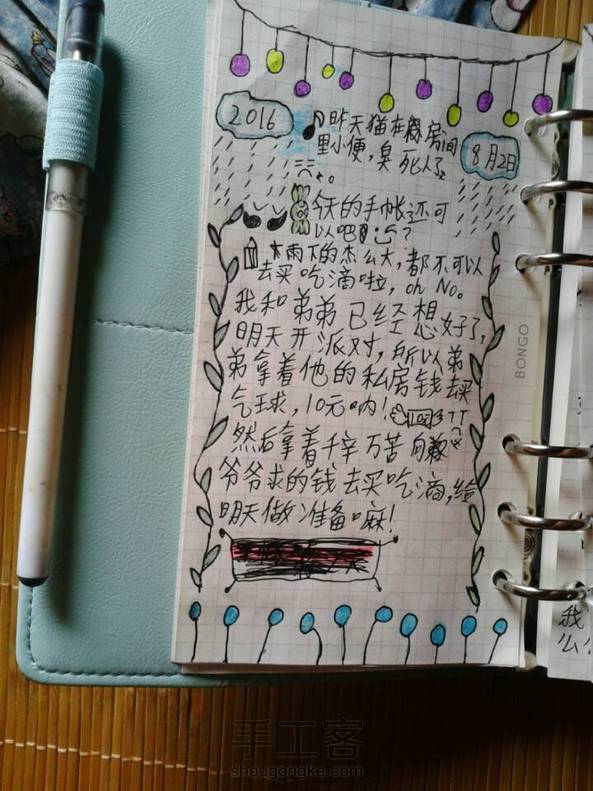 2016
昨天猫在房间
里小便,臭死人了。
8月2日
今天的手帐还可
以吧?
雨下的杰么大,都不可以
去买吃滴啦,oh No。
我和弟弟已经想好了,
明天开派对,所以弟
弟拿着他的私房钱去买
气球,10元呐!
然后拿着千辛万苦向
爷爷求的钱去买吃滴,给
明天做准备嘛!
BONGO
我
么
手工客
shougongke.com